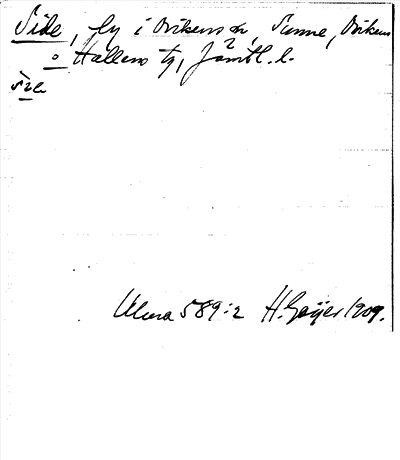 Side, by i Ovikens sn, Sunne, Ovikens
o Hallens tg, Jämtl. l.
Ulma 589:2 H. Geijer 1909.